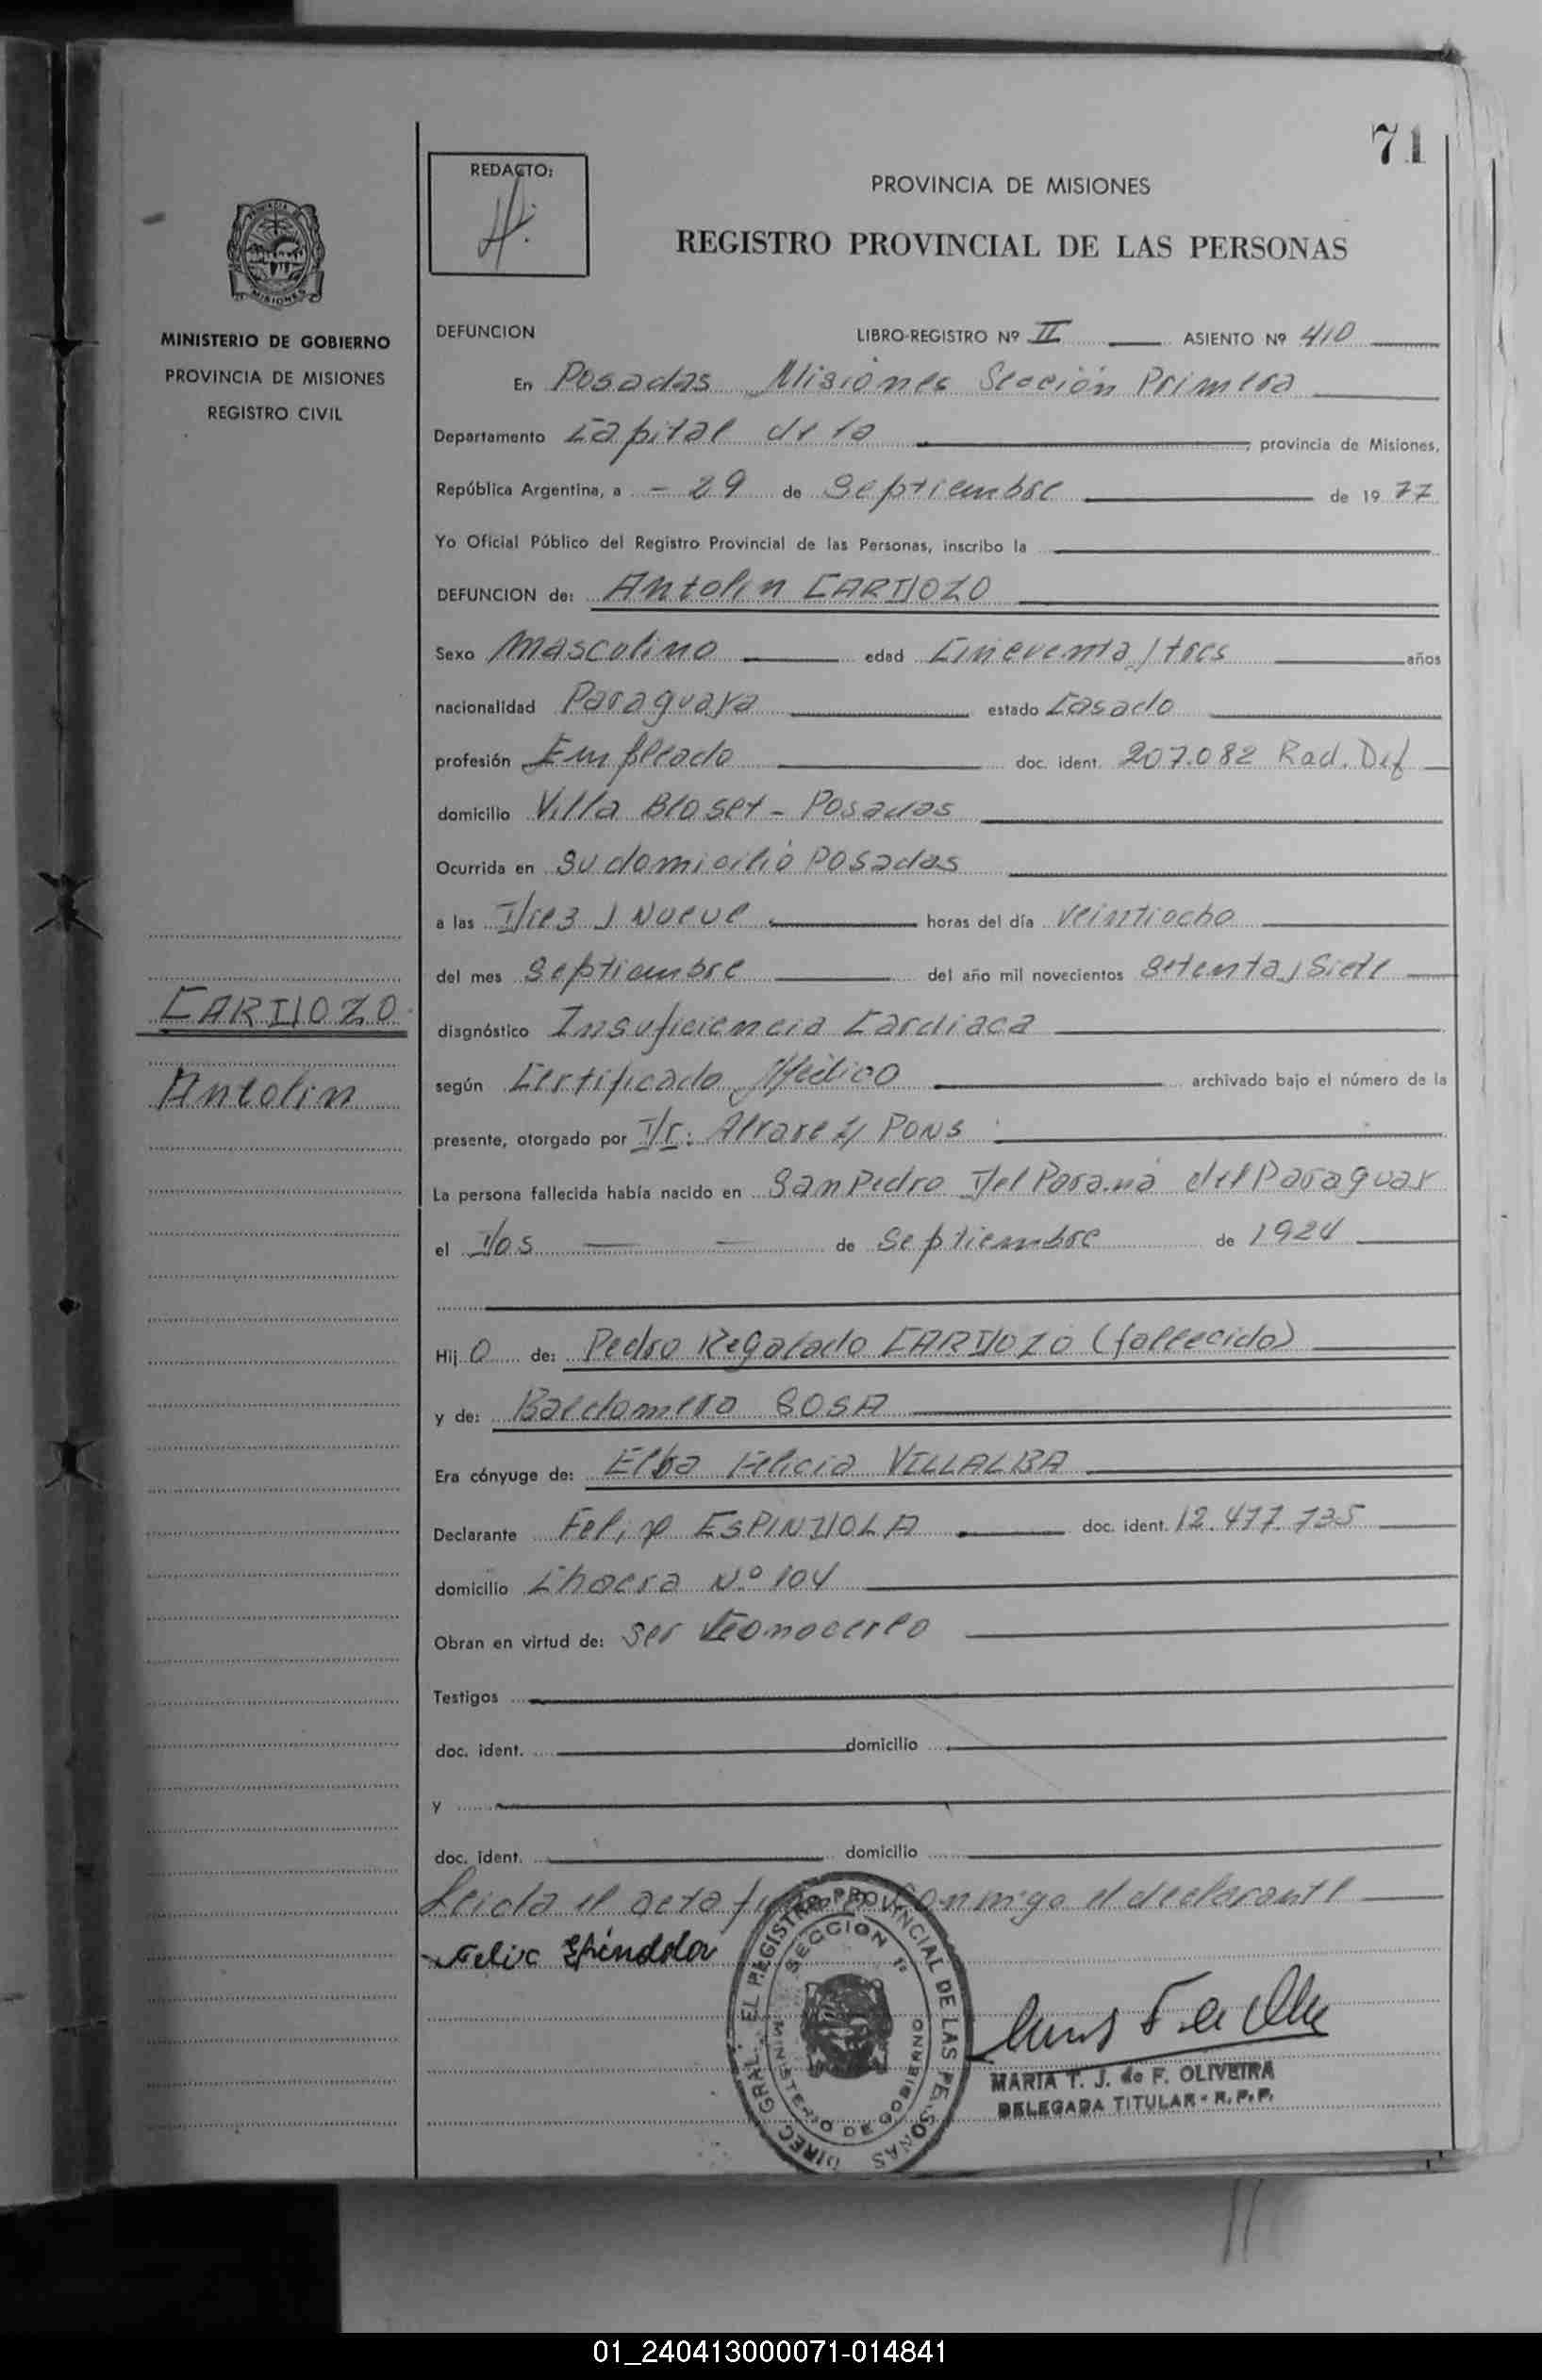 71
REDACTO:
PROVINCIA DE MISIONES
REGISTRO PROVINCIAL DE LAS PERSONAS
MISIONES
MINISTERIO DE GOBIERNO
PROVINCIA DE MISIONES
REGISTRO CIVIL
DEFUNCION LIBRO-REGISTRO Nº II ASIENTO Nº 410
En Posadas Misiones Sección Primera
Departamento Capital de la provincia de Misiones,
República Argentina, a - 29 de Septiembre de 19 77
Yo Oficial Público del Registro Provincial de las Personas, inscribo la
DEFUNCION de: Antolin CARDOZO
Sexo Masculino edad Cincuenta y tres años
nacionalidad Paraguaya estado Casado
profesión Empleado doc. ident. 207.082 Rad. Def
domicilio Villa Bloset - Posadas
Ocurrida en Su domicilio Posadas
a las Diez y Nueve horas del día Veintiocho
del mes Septiembre del año mil novecientos Setenta y Siete
CARDOZO
diagnóstico Insuficiencia Cardiaca
Antolin
según Certificado Médico archivado bajo el número de la
presente, otorgado por Dr. Alvarez Pons
La persona fallecida había nacido en San Pedro Del Paraná del Paraguay
el Dos de Septiembre de 1924
Hij O de: Pedro Regalado CARDOZO (fallecido)
y de: Baldomera SOSA
Era cónyuge de: Elba Felicia VILLALBA
Declarante Felix ESPINDOLA doc. ident. 12.477.735
domicilio Chacra Nº 104
Obran en virtud de: Ser Conocerlo
Testigos
doc. ident. domicilio
y
doc. ident. domicilio
Leida el acta conmigo el declarante
Felix Espindola
DIREC. GRAL. EL REGISTRO PROVINCIAL DE LAS PERSONAS
SECCION 1º
MINISTERIO DE GOBIERNO
MARIA T. J. de F. OLIVEIRA
DELEGADA TITULAR - R.P.P.
01_240413000071-014841